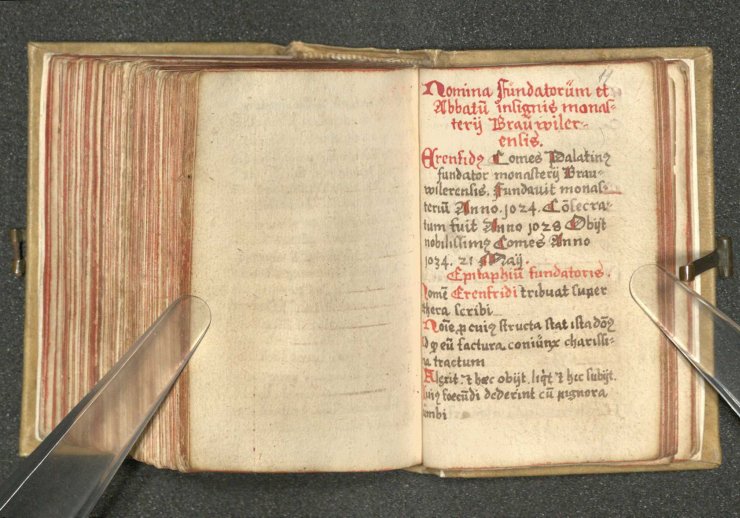 Nomina Fundatorūm et
Abbatū insignis monas-
terij Braūwiler-
ensis.
Erenfidꝰ Comes Palatinꝰ
fundator monasterij Brau-
wilerensis. Fundauit monas-
teriū Anno. 1024. Cōsecra-
tum fuit Anno 1028 Obijt
nobilissimꝰ Comes Anno
1034. 21 Maij.
Epitaphiū fundatoris.
Nomē Erenfridi tribuat super
thera scribi
structa stat ista
eū factura coniūnx charissi-
tractum
hæc obijt, hic subijt.
foecūdi dederint cū pignora